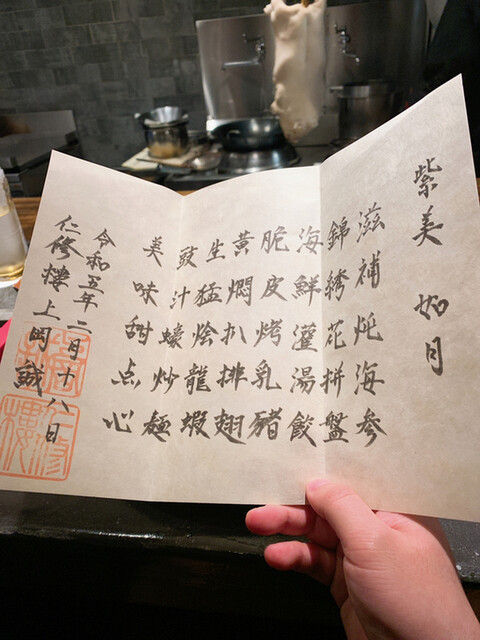 紫美 如月
滋補炖海参
錦綉花拼盤
海鮮灌湯餃
脆皮烤乳豬
黄燜扒排翅
生猛烩龍蝦
豉汁蠔炒麺
美味甜点心
令和五年二月十八日
仁修樓上岡誠
仁修樓